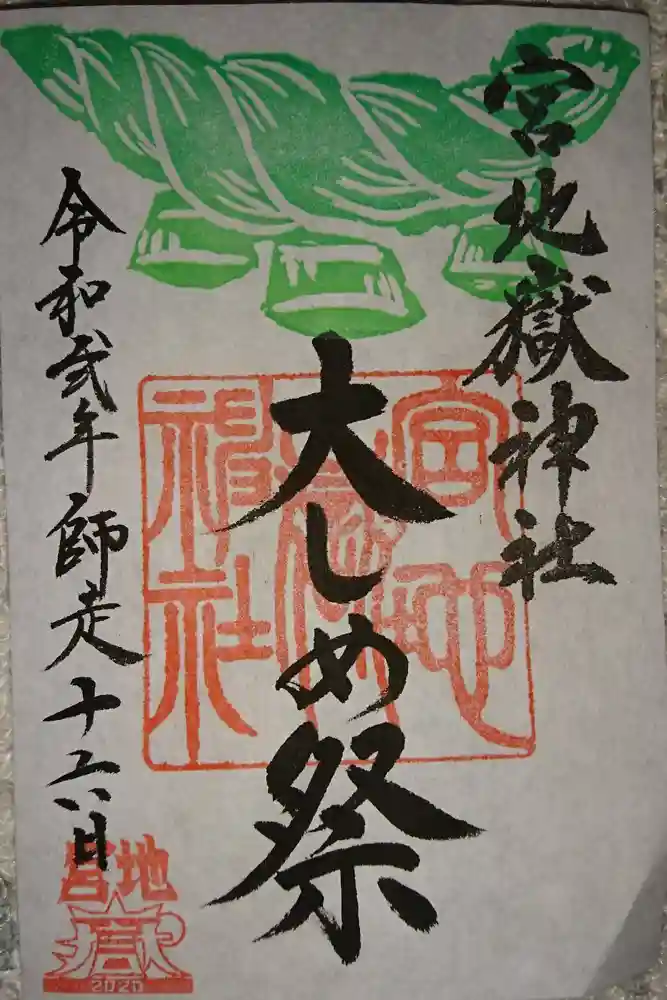 宮地嶽神社
大しめ祭
令和弐年師走十六日
宮地
嶽神
社
宮地
嶽
2020